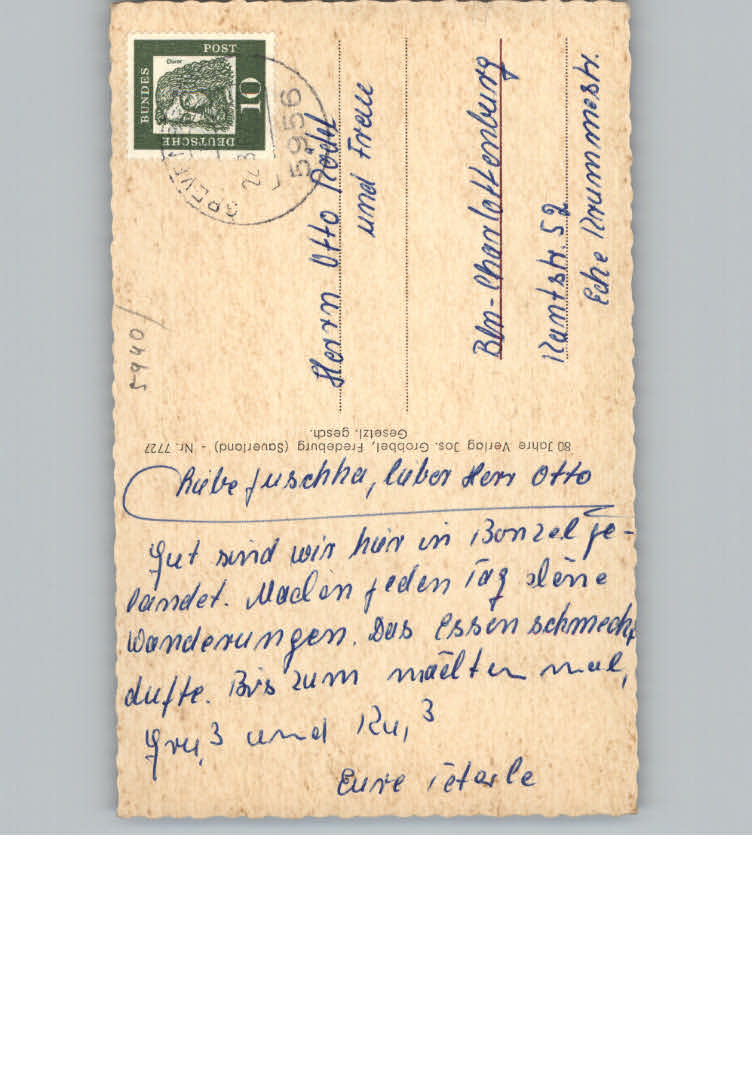 BUNDES
POST
Dürer
10
DEUTSCHE
5956
5940
Herrn Otto
und Frau
Bln-Charlottenburg
Kantstr. 52
Ecke Krummestr.
80 Jahre Verlag Jos. Grobbel, Fredeburg (Sauerland) - Nr. 7727
Gesetzl. gesch.
Liebe Juschka, lieber Herr Otto
Gut sind wir hier in Bonzel ge-
landet. Machen jeden Tag
Wanderungen. Das Essen schmeckt
dufte. Bis zum nächsten mal,
Gruß und Kuß
Eure